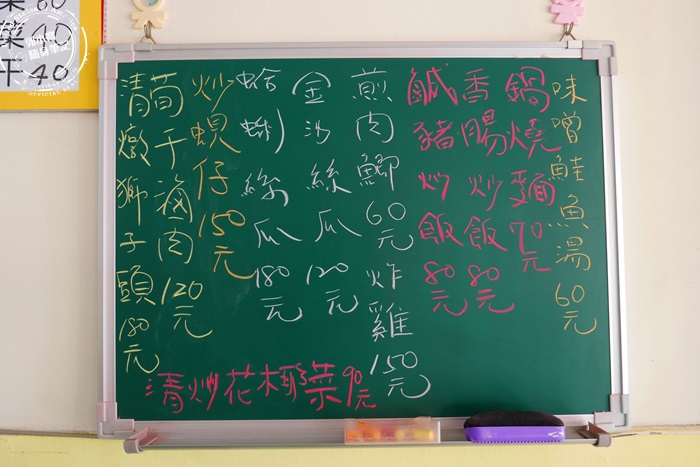 味噌鮭魚湯60元
鍋燒麵70元
香腸炒飯80元
鹹豬炒飯80元
煎肉鯽60元
炸雞150元
金沙絲瓜120元
蛤蜊絲瓜180元
炒蜆仔150元
筍干滷肉120元
清燉獅子頭180元
清炒花椰菜90元
菜40
干40
隨身筆記